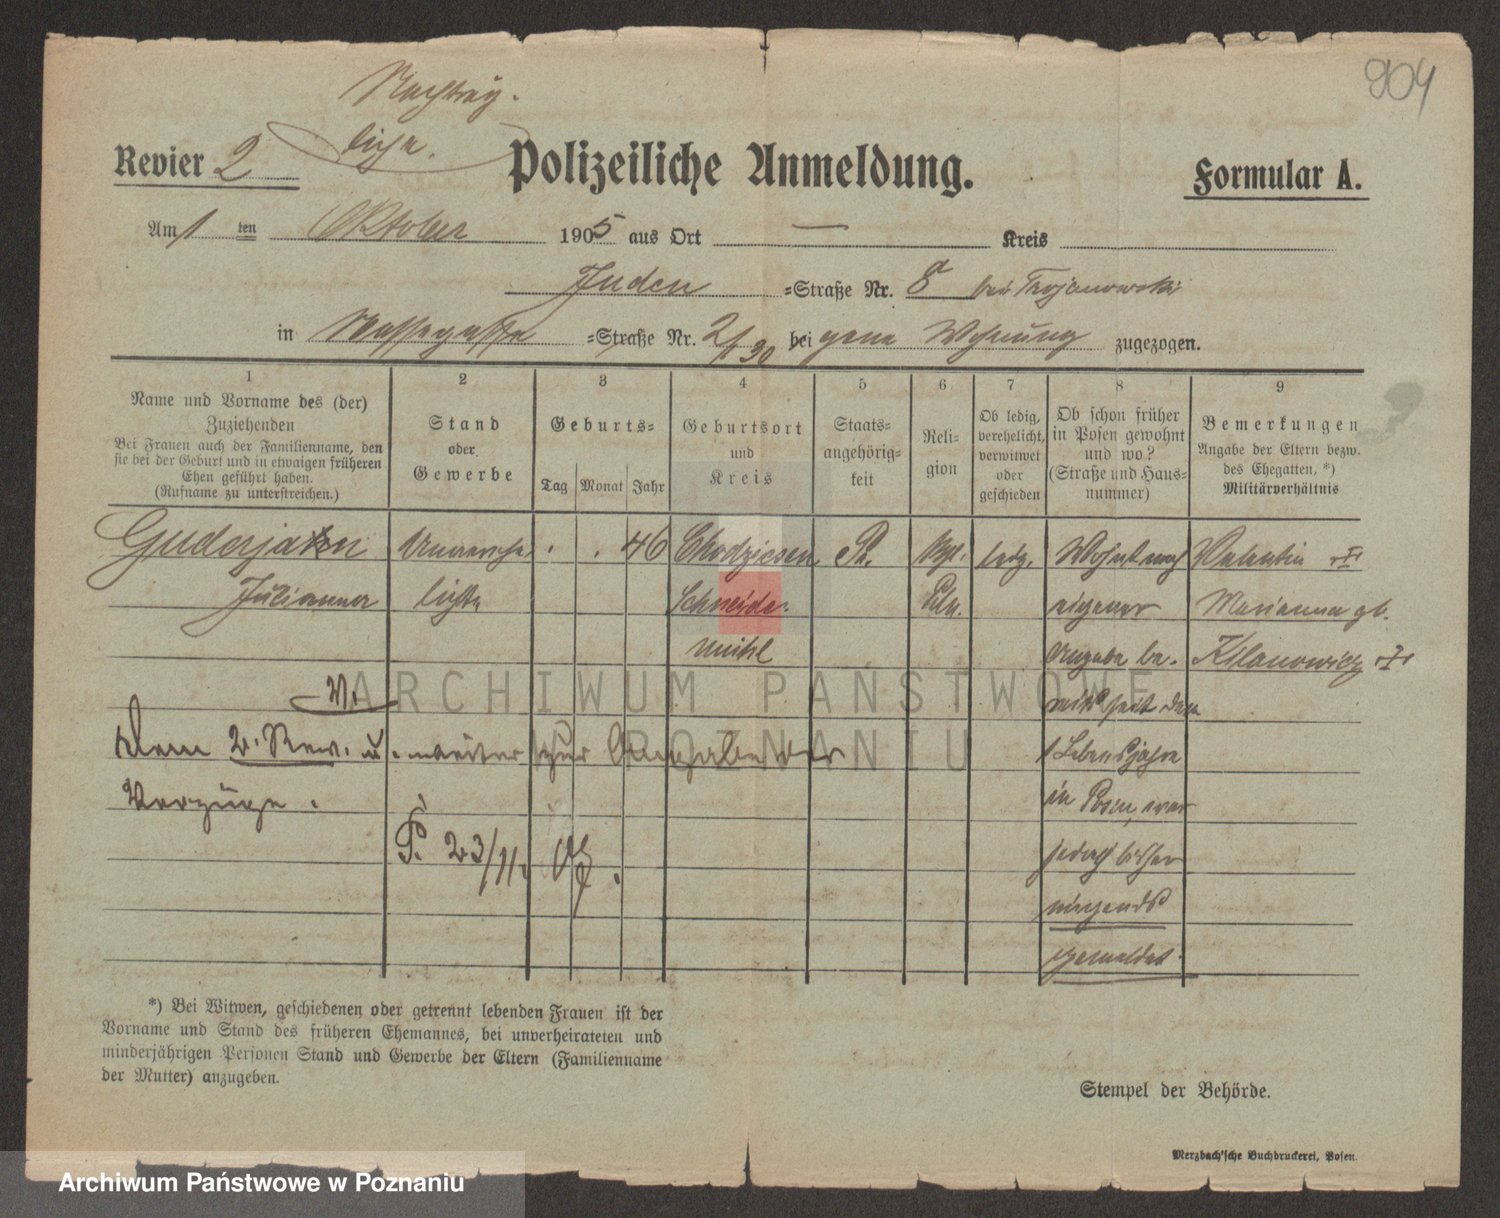 904
Nachträg-
liche.
Revier 2
Polizeiliche Anmeldung.
Formular A.
Am 1 ten Oktober 1905 aus Ort — Kreis
Juden =Straße Nr. 8 bei Trojanowski
in =Straße Nr. 2/30 bei Wohnung zugezogen.
1 2 3 4 5 6 7 8 9
Name und Vorname des (der)
Zuziehenden
Bei Frauen auch der Familienname, den
sie bei der Geburt und in etwaigen früheren
Ehen geführt haben.
(Rufname zu unterstreichen.)
Stand
oder
Gewerbe
Geburts=
Tag Monat Jahr
Geburtsort
und
Kreis
Staats-
angehörig-
keit
Reli-
gion
Ob ledig,
verehelicht,
verwitwet
oder
geschieden
Ob schon früher
in Posen gewohnt
und wo?
(Straße und Haus-
nummer)
Bemerkungen
Angabe der Eltern bezw.
des Ehegatten, *)
Militärverhältnis
Guderjahn
Julianna
46
Chodziesen
Schneide-
mühl
Pr.
ledg.
Wohnt nach
eigener
Angabe be-
reits seit dem
1 Lebensjahre
in Posen, war
jedoch bisher
nirgends
gemeldet.
Valentin
Marianna gb.
V.
Dem 2. Rev. zur Angabe der
Verzüge.
P. 23/11.
*) Bei Witwen, geschiedenen oder getrennt lebenden Frauen ist der
Vorname und Stand des früheren Ehemannes, bei unverheirateten und
minderjährigen Personen Stand und Gewerbe der Eltern (Familienname
der Mutter) anzugeben.
Stempel der Behörde.
Merzbach'sche Buchdruckerei, Posen.
ARCHIWUM PAŃSTWOWE
W POZNANIU
Archiwum Państwowe w Poznaniu